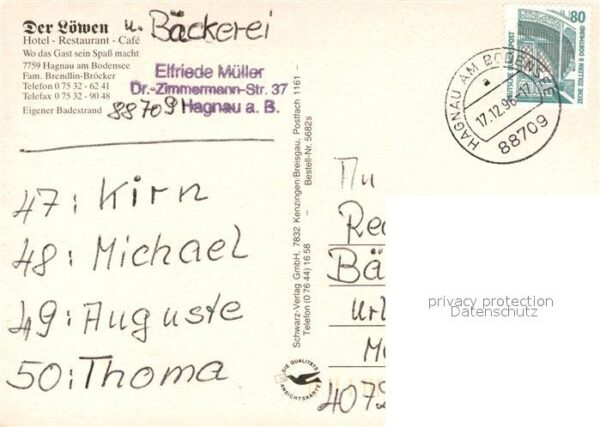 Der Löwen u. Bäckerei
Hotel - Restaurant - Café
Wo das Gast sein Spaß macht
7759 Hagnau am Bodensee
Fam. Brendlin-Bröcker
Telefon 0 75 32 - 62 41
Telefax 0 75 32 - 90 48
Eigener Badestrand
Elfriede Müller
Dr.-Zimmermann-Str. 37
88709 Hagnau a. B.
47: Kirn
48: Michael
49: Auguste
50: Thoma
Schwarz-Verlag GmbH, 7832 Kenzingen/Breisgau, Postfach 1161 –
Telefon (0 76 44) 16 58 – Bestell-Nr. 5682s
DIE QUALITÄTS
ANSICHTSKARTE
80
DEUTSCHE BUNDESPOST
ZECHE ZOLLERN II DORTMUND
HAGNAU AM BODENSEE
17.12.96-17
88709
Bä
4079
privacy protection
Datenschutz